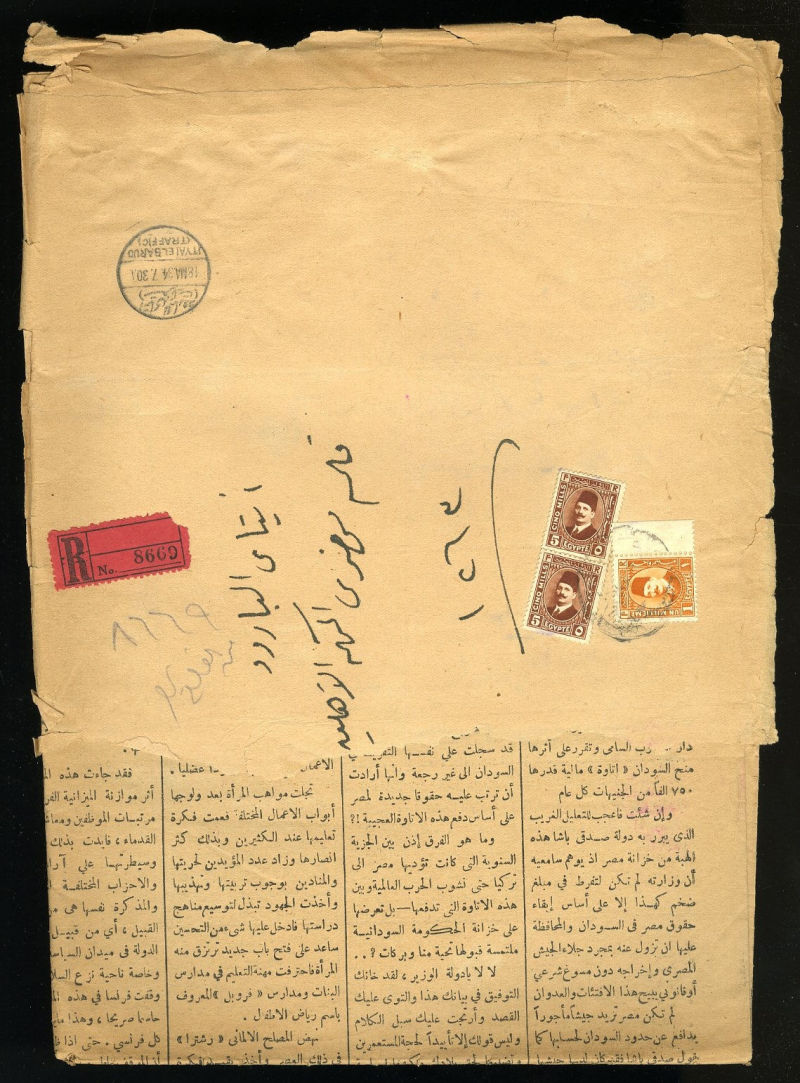 ITYAI EL BARUD
(TRAFFIC)
18 MA.34 7.30
R
No. 8669
٨٦٦٩
قلم محضرى المحكمة الاهلية
ايتاى البارود
CINQ MILLS
5 EGYPTE ٥
CINQ MILLS
5 EGYPTE ٥
1 EGYPTE ١
UN MILLIEME
السامى وتقرر على أثرها
منح السودان « اتاوة » مالية قدرها
٧٥٠ الفاً من الجنيهات كل عام
وإن شئت فاعجب للتعليل الغريب
الذى يبرر به دولة صدقى باشا هذه
الهبة من خزانة مصر اذ يوهم سامعيه
أن وزارته لم تكن لتفرط فى مبلغ
ضخم كهذا إلا على أساس إبقاء
حقوق مصر فى السودان والمحافظة
عليها ان تزول عنه بمجرد جلاء الجيش
المصرى وإخراجه دون مسوغ شرعى
أوقانونى يبيح هذا الافتئات والعدوان
لم تكن مصر تريد جيشاً مأجوراً
يدافع عن حدود السودان لحسابها كما
قد سجلت على نفسها
السودان الى غير رجعة وانها أرادت
أن ترتب عليه حقوقا جديدة لمصر
على أساس دفع هذه الاتاوة العجيبة !؟
وما هو الفرق إذن بين الجزية
السنوية التى كانت تؤديها مصر الى
تركيا حتى نشوب الحرب العالمية وبين
هذه الاتاوة التى تدفعها — بل تعرضها
على خزانة الحكومة السودانية
ملتمسة قبولها تحية منا وبركات ؟..
لا لا يادولة الوزير ، لقد خانك
التوفيق فى بيانك هذا والتوى عليك
القصد وأرتجت عليك سبل الكلام
وليس قولك إلا تأييداً لحجة المستعمرين
عضليا .
تجلت مواهب المرأة بعد ولوجها
أبواب الاعمال المختلفة فعمت فكرة
تعليمها عند الكثيرين وبذلك كثر
انصارها وزاد عدد المؤيدين لحريتها
والمنادين بوجوب تربيتها وتهذيبها
وأخذت الجهود تبذل لتوسيع مناهج
دراستها فادخل عليها شىء من التحسين
ساعد على فتح باب جديد ترتزق منه
المرأة فاحترفت مهنة التعليم فى مدارس
البنات ومدارس « فروبل » المعروف
باسم رياض الاطفال .
نهض المصلح الالمانى « رشترا »
فقد جاءت هذه
أثر موازنة الميزانية
مرتبات الموظفين
القدماء ، فابدت بذلك
وسيطرتهما على
والاحزاب المختلفة
والمذكرة نفسها هى
القبيل ، أي من قبيل
الدولة فى ميدان
وخاصة ناحية نزع
وقفت فرنسا فى هذه
حاسما صريحا ، وهذا
كل فرنسى . حتى اذا